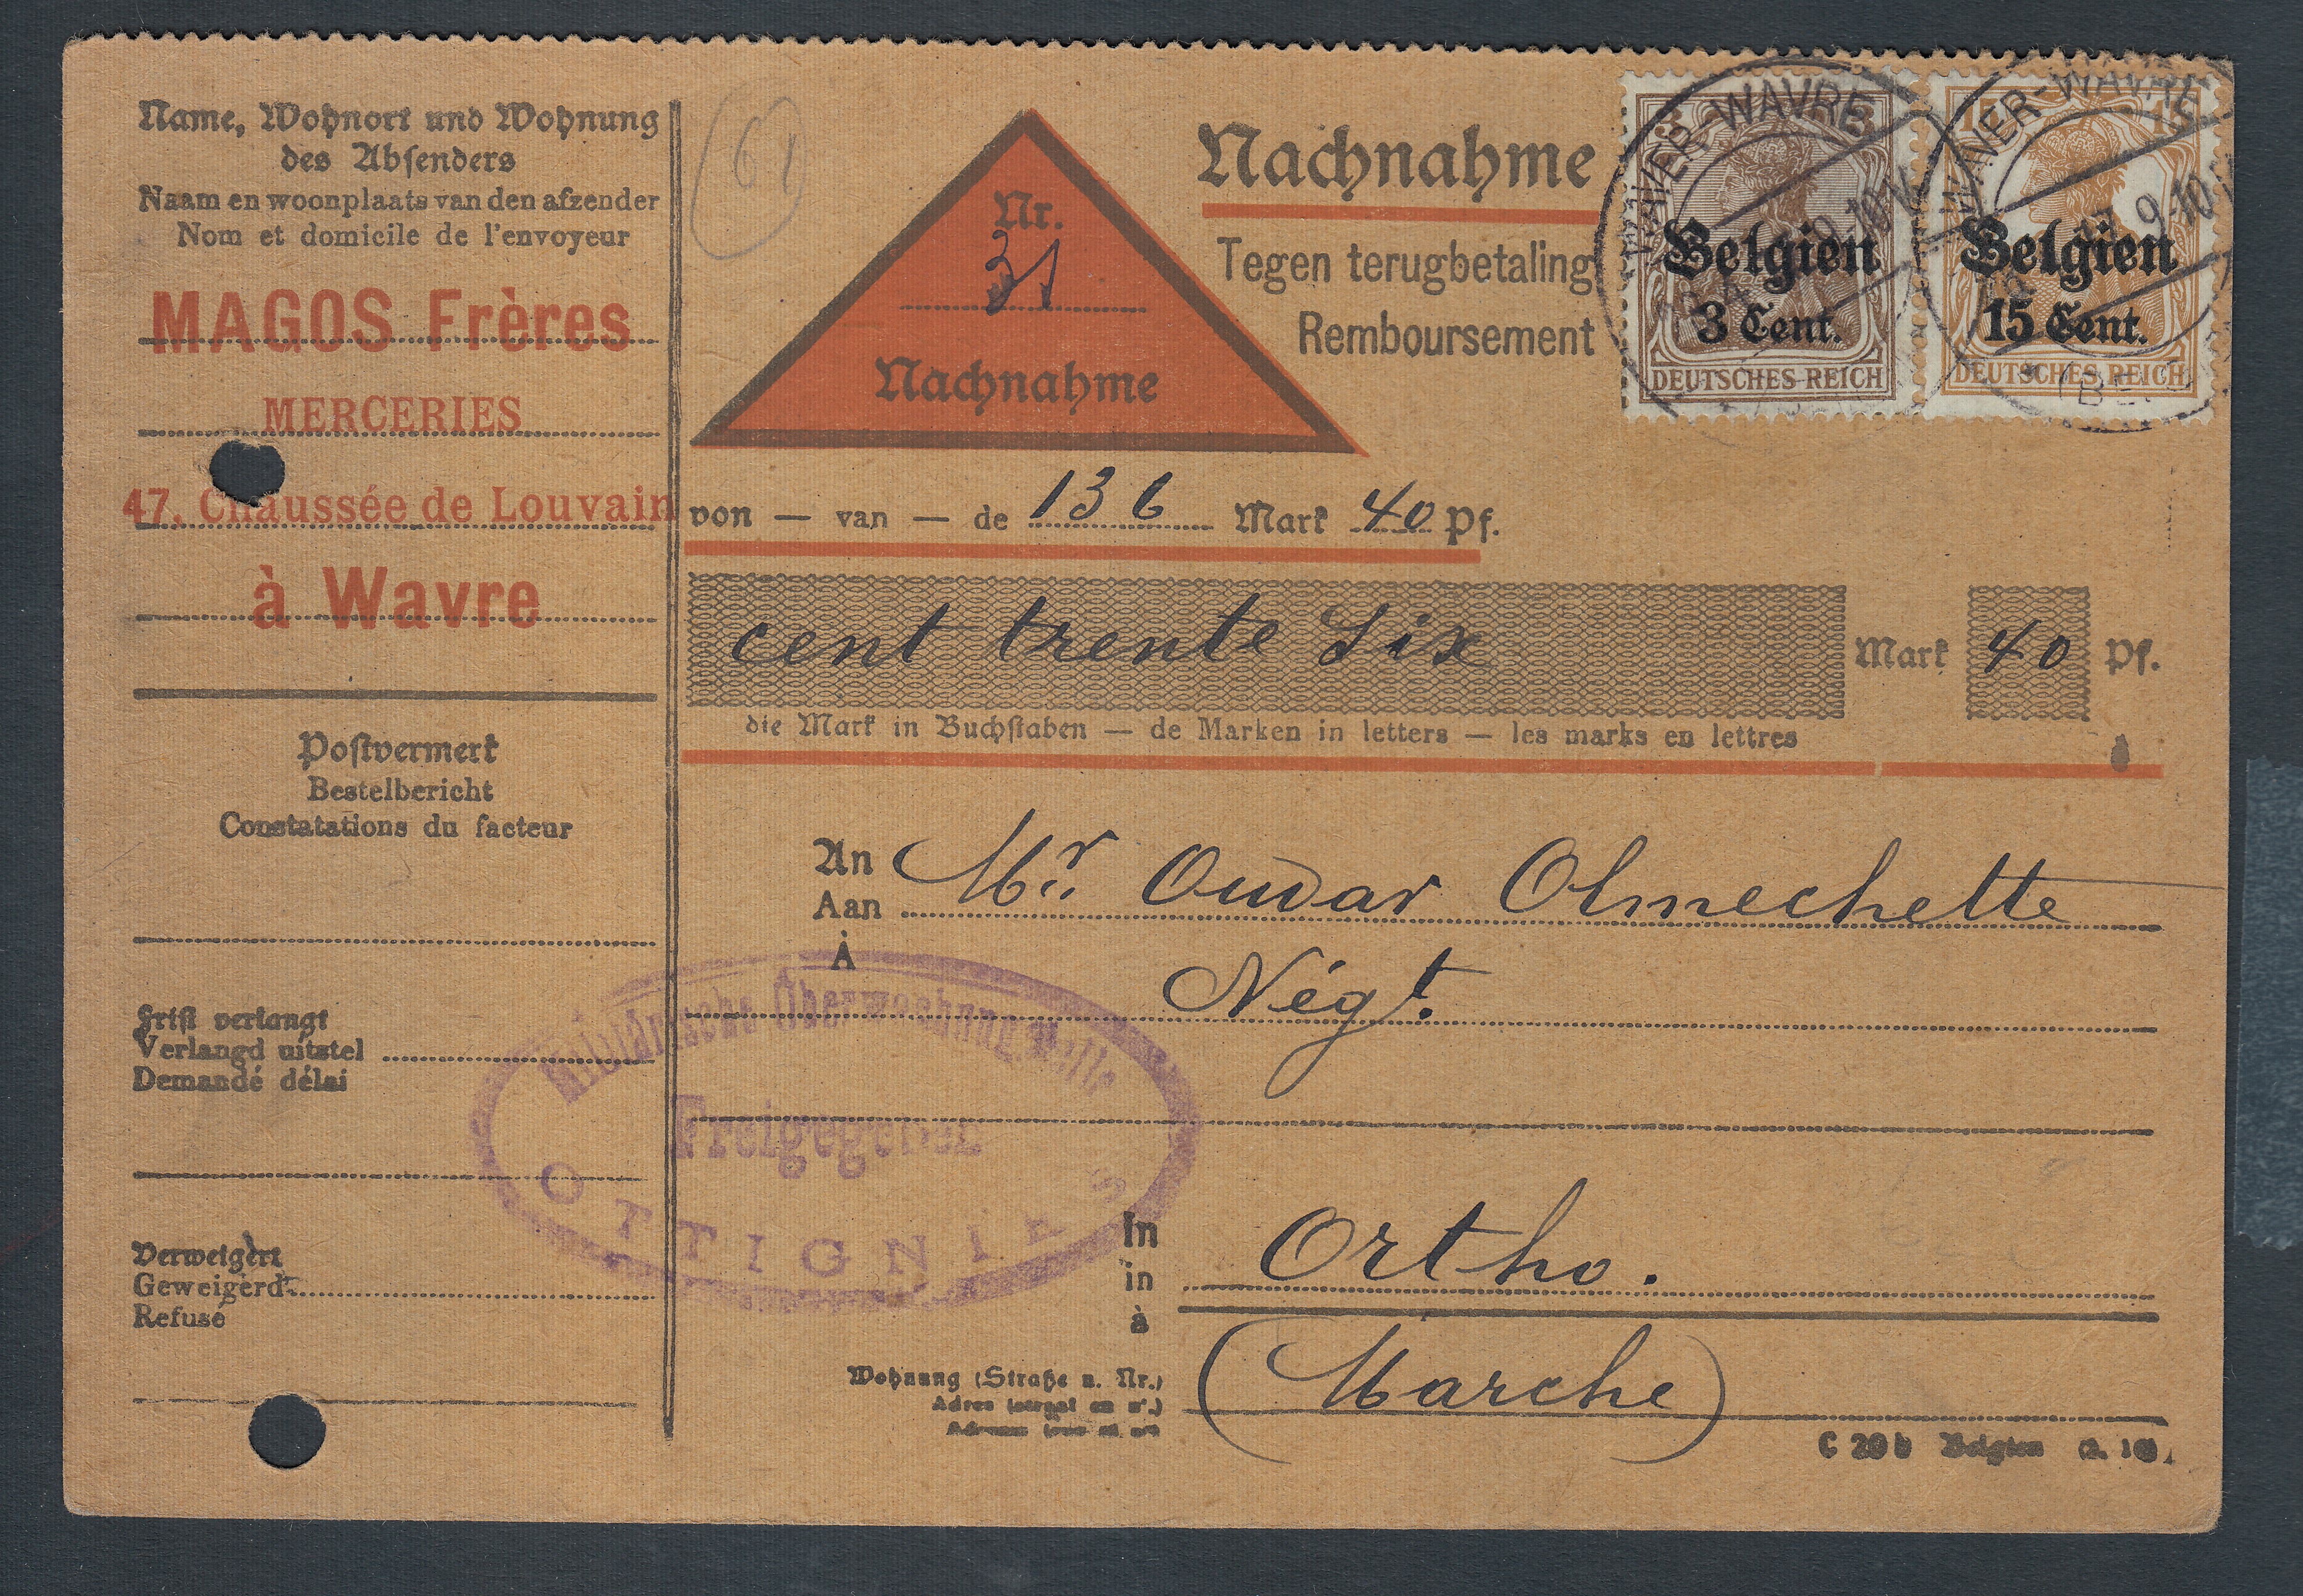 Name, Wohnort und Wohnung
des Absenders
Naam en woonplaats van den afzender
Nom et domicile de l'envoyeur
MAGOS Frères
MERCERIES
47, Chaussée de Louvain
à Wavre
Postvermerk
Bestelbericht
Constatations du facteur
Frist verlangt
Verlangd uitstel
Demandé délai
Verweigert
Geweigerd
Refusé
(61)
Nr.
31
Nachnahme
Nachnahme
Tegen terugbetaling
Remboursement
WAVER-WAVRE
9-10V
Belgien
3 Cent.
DEUTSCHES REICH
WAVER-WAVRE
9-10
15
Belgien
15 Cent.
DEUTSCHES REICH
von — van — de 136 Mark 40 Pf.
cent trente Six Mark 40 Pf.
die Mark in Buchstaben — de Marken in letters — les marks en lettres
An
Aan
À
Mr. Oudar Olmechette
Négt.
Militärische Überwachungsstelle
Freigegeben
OTTIGNIES
In
in
à
Ortho.
Wohnung (Straße u. Nr.)
Adres (straat en nr.)
(Marche)
C 20 b Belgien